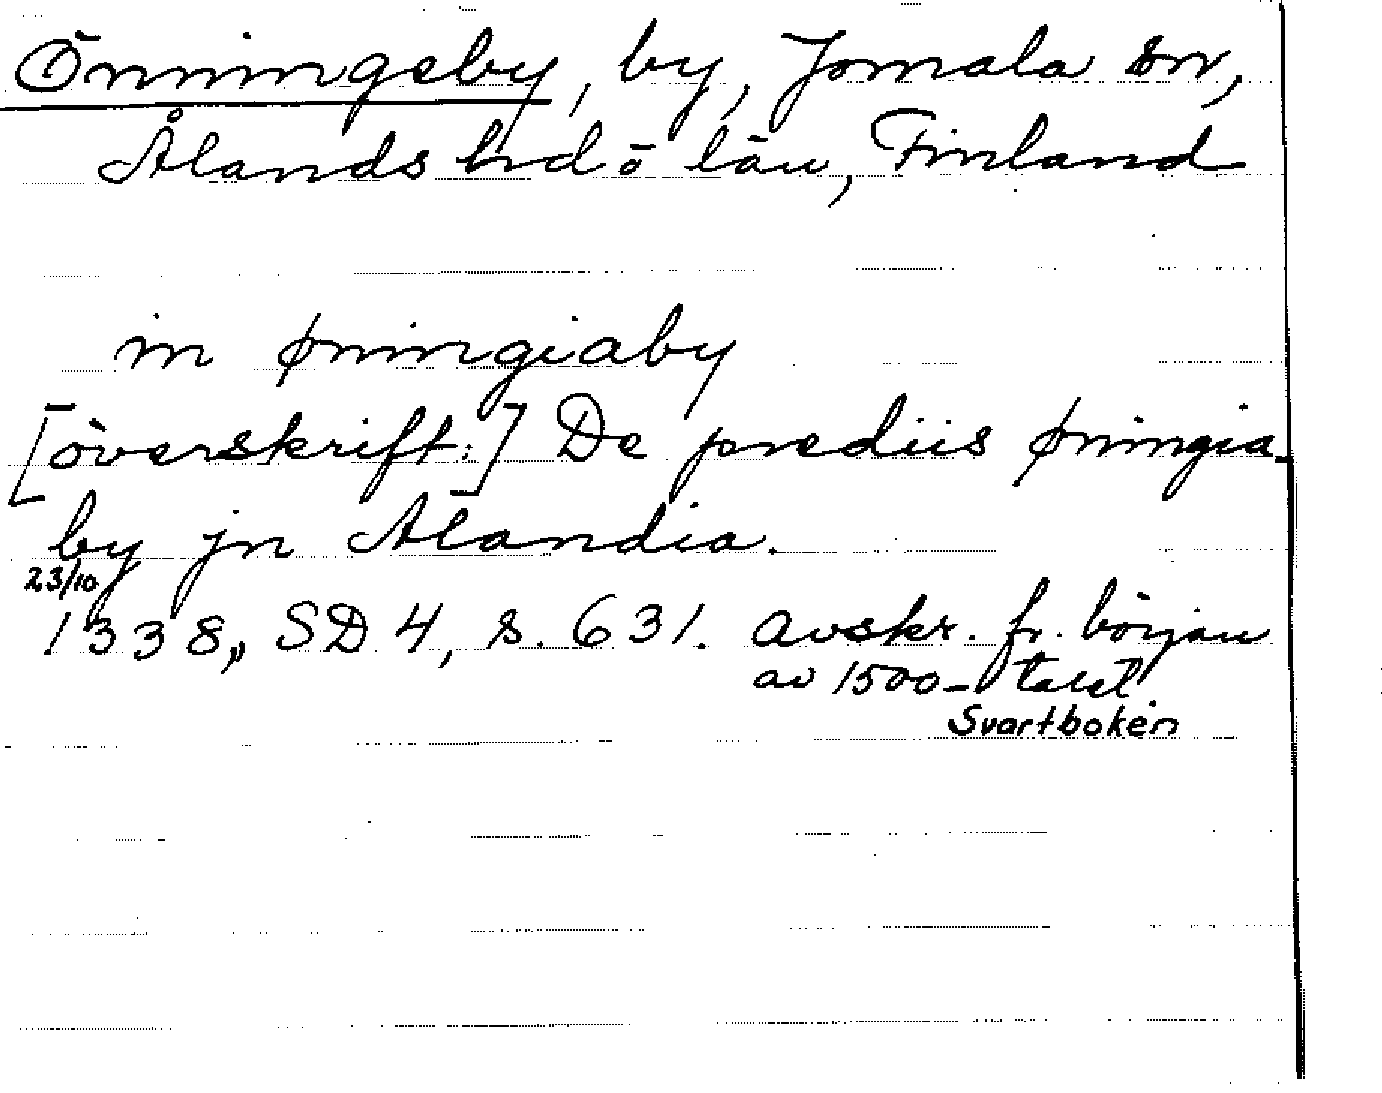 Önningeby, by, Jomala sn,
Ålands hd o län, Finland
in øningiaby
[överskrift:] De prediis øningia-
by jn Alandia.
23/10
1338,, SD 4, s. 631. Avskr. fr. början
av 1500-talet.
Svartboken